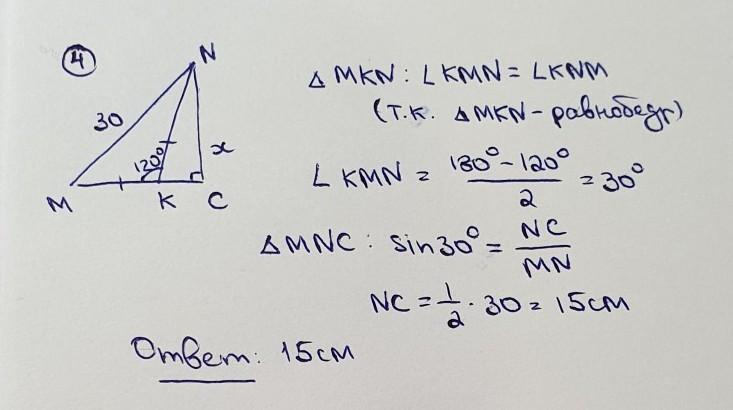 ④
N
30
120°
x
M K C
Δ MKN : ∠KMN = ∠KNM
(т.к. ΔMKN - равнобедр)
∠ KMN = (180° - 120°)/2 = 30°
ΔMNC : sin30° = NC/MN
NC = 1/2 · 30 = 15см
Ответ: 15см